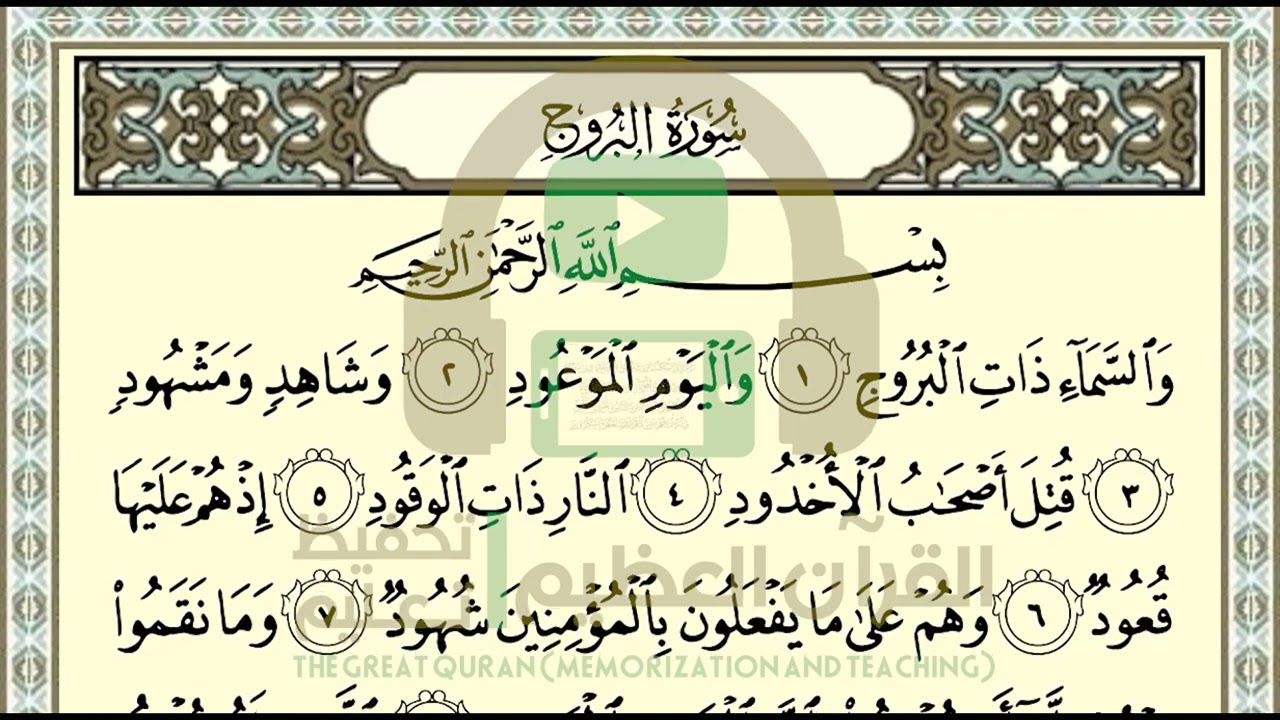 سُورَةُ البُرُوجِ
بِسْمِ ٱللَّهِ ٱلرَّحْمَٰنِ ٱلرَّحِيمِ
وَٱلسَّمَآءِ ذَاتِ ٱلْبُرُوجِ ١ وَٱلْيَوْمِ ٱلْمَوْعُودِ ٢ وَشَاهِدٍ وَمَشْهُودٍ
٣ قُتِلَ أَصْحَٰبُ ٱلْأُخْدُودِ ٤ ٱلنَّارِ ذَاتِ ٱلْوَقُودِ ٥ إِذْ هُمْ عَلَيْهَا
تحفيظ القرآن العظيم
تعليم
قُعُودٌ ٦ وَهُمْ عَلَىٰ مَا يَفْعَلُونَ بِٱلْمُؤْمِنِينَ شُهُودٌ ٧ وَمَا نَقَمُوا۟
THE GREAT QURAN (MEMORIZATION AND TEACHING)